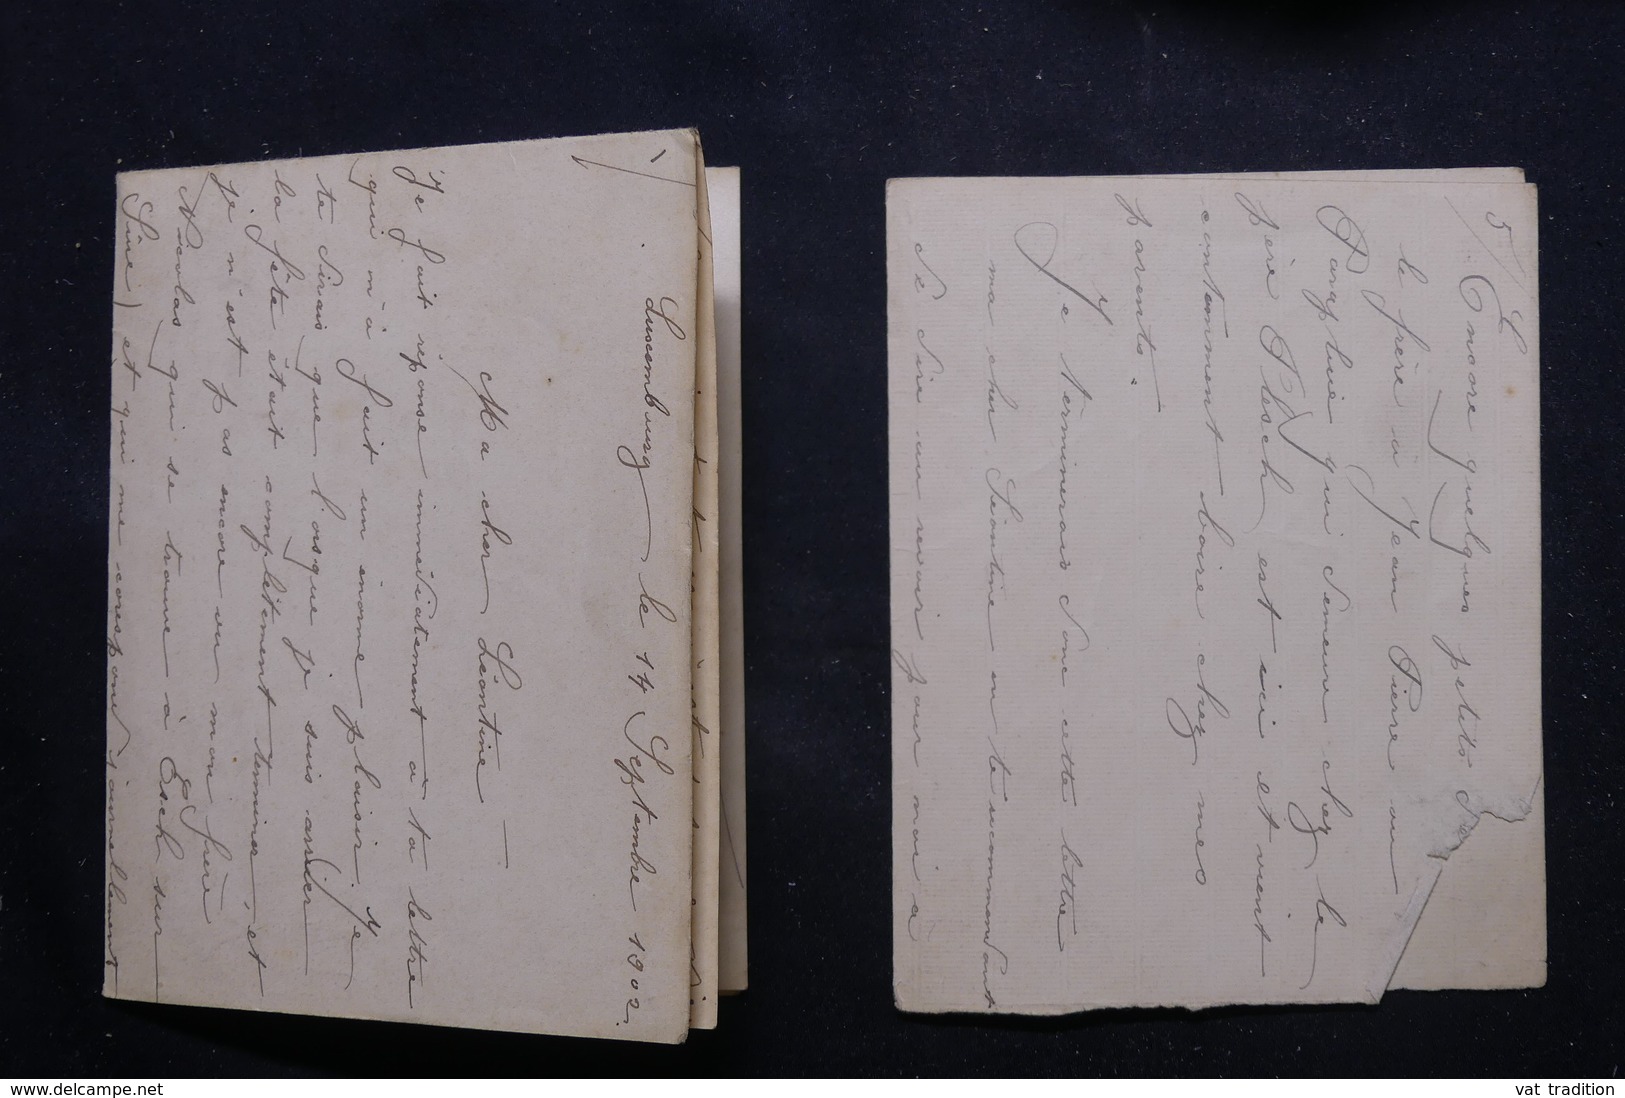 Luxembourg le 14 Septembre 1902.
Ma cher Léontine
Je fait réponse immédiatement à ta lettre
qui m'à fait un énorme plaisir, je
te dirais que l'orsque je suis arriver
la fête était complètement terminer, et
je n'est pas encore vu mon frère
Nicolas qui se trouve à Esch sur
Sûre) et qui me corespond journellement
5/ Encore quelques petits
le frère à Jean Pierre ou
Parapluie qui demeure chez le
père Plesch est ici et vient
contament boire chez mes
parents.
Je terminerais donc cette lettre
ma cher Léontine en te recommendant
de dire au revoir pour moi à
www.delcampe.net
vat tradition